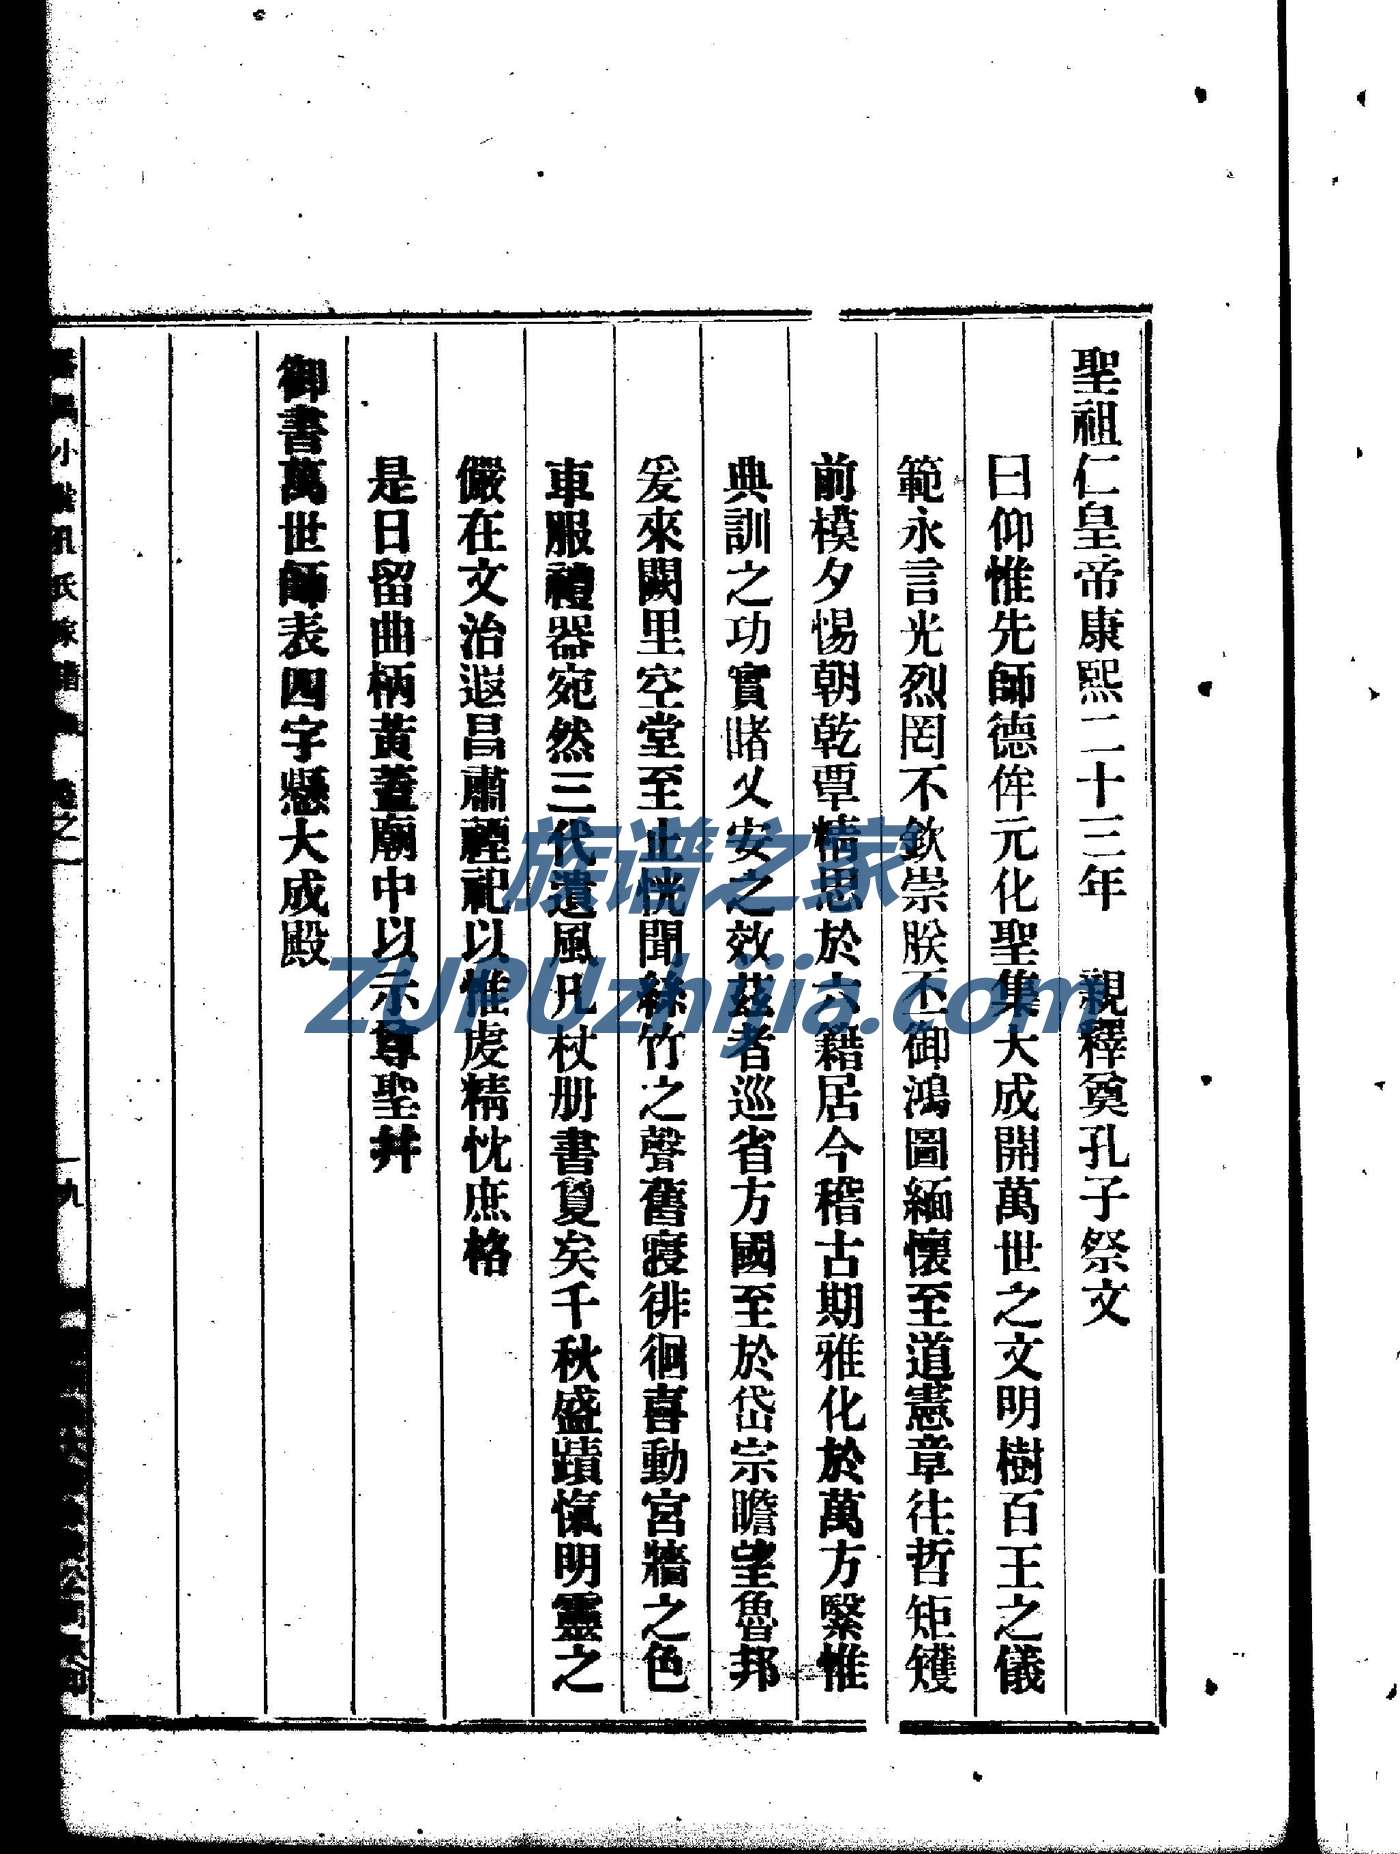 聖祖仁皇帝康熙二十三年　親釋奠孔子祭文
曰仰惟先師德侔元化聖集大成開萬世之文明樹百王之儀
範永言光烈罔不欽崇朕丕御鴻圖緬懷至道憲章往哲矩矱
前模夕惕朝乾覃精思於六籍居今稽古期雅化於萬方緊惟
典訓之功實賭乂安之效茲者巡省方國至於岱宗瞻望魯邦
爰來闕里空堂至止恍聞絲竹之聲舊寢徘徊喜動宮牆之色
車服禮器宛然三代遺風几杖册書夐矣千秋盛蹟愾明靈之
儼在文治遐昌肅禋祀以惟虔精忱庶格
是日留曲柄黃蓋廟中以示尊聖幷
御書萬世師表四字懸大成殿
小 孔氏家譜 卷之一
一九
族谱之家
ZUPUzhijia.com